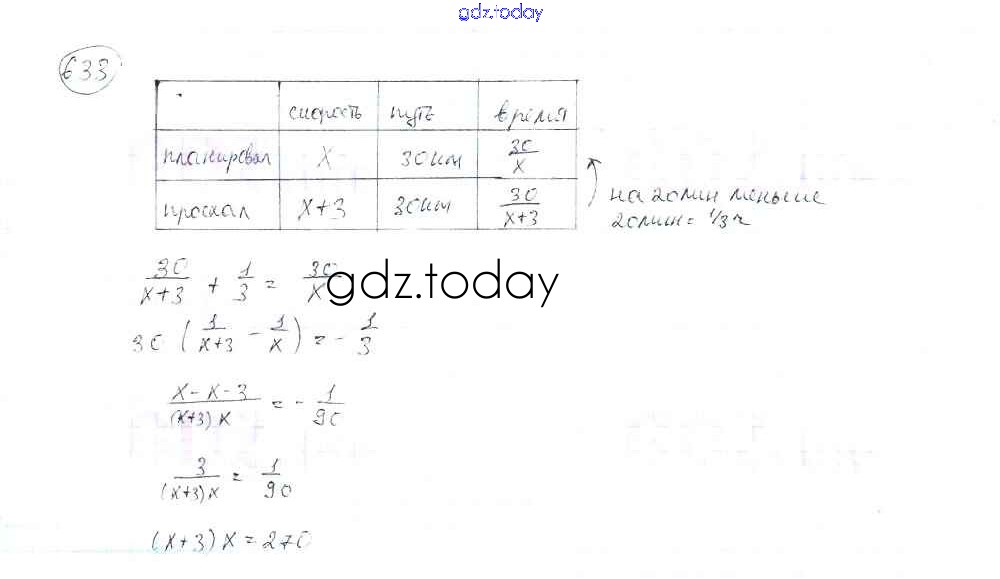 gdz.today
633
скорость путь время
планировал x 30км 30/x
проехал x+3 30км 30/(x+3)
на 20мин меньше
20мин = 1/3 ч
30/(x+3) + 1/3 = 30/x
gdz.today
30 (1/(x+3) - 1/x) = - 1/3
(x-x-3)/((x+3)x) = - 1/90
3/((x+3)x) = 1/90
(x+3) x = 270